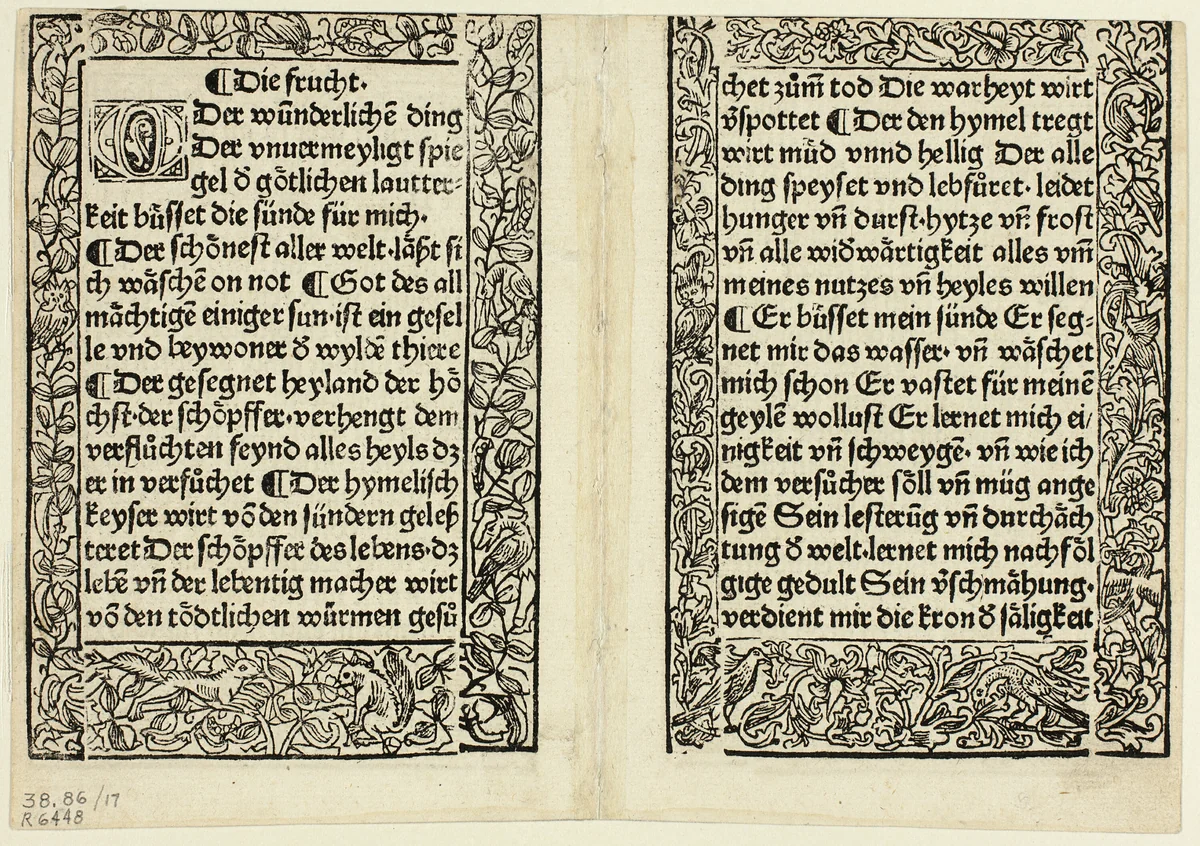 ¶ Die frucht.
O Der wūnderlichē ding
Der vnuermeyligt spie
gel d̄ götlichen lautter-
keit büsset die sünde für mich.
¶ Der schönest aller welt. läßt si
ch wäschē on not ¶ Got des all
mächtigē einiger sun. ist ein gesel
le vnd beywoner d̄ wyldē thiere
¶ Der gesegnet heyland der hö
chst. der schöpffer. verhengt dem
verflůchten feynd alles heyls dz
er in versůchet ¶ Der hymelisch
keyser wirt vō den sündern geleß
teret Der schöpffer des lebens. dz
lebē vn̄ der lebentig macher wirt
vō den tödtlichen würmen gesů
chet zům̄ tod Die warheyt wirt
v̄spottet ¶ Der den hymel tregt
wirt müd vnnd hellig Der alle
ding speyset vnd lebfůret. leidet
hunger vn̄ durst. hytze vn̄. frost
vn̄ alle widwärtigkeit alles vm̄
meines nutzes vn̄ heyles willen
¶ Er büsset mein sünde Er seg-
net mir das wasser. vn̄ wäschet
mich schon Er vastet für meinē
geylē wollust Er lernet mich ei/
nigkeit vn̄ schweygē. vn̄ wie ich
dem versůcher söll vn̄ müg ange
sigē Sein lesterūg vn̄ durchäch
tung d̄ welt. lernet mich nachföl
gige gedult Sein v̄schmähung.
verdient mir die kron d̄ säligkeit
38.86/17
R6448